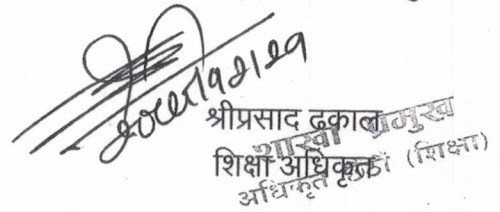 श्रीप्रसाद ढकाल
शिक्षा अधिकृत
शाखा प्रमुख
अधिकृत (शिक्षा)